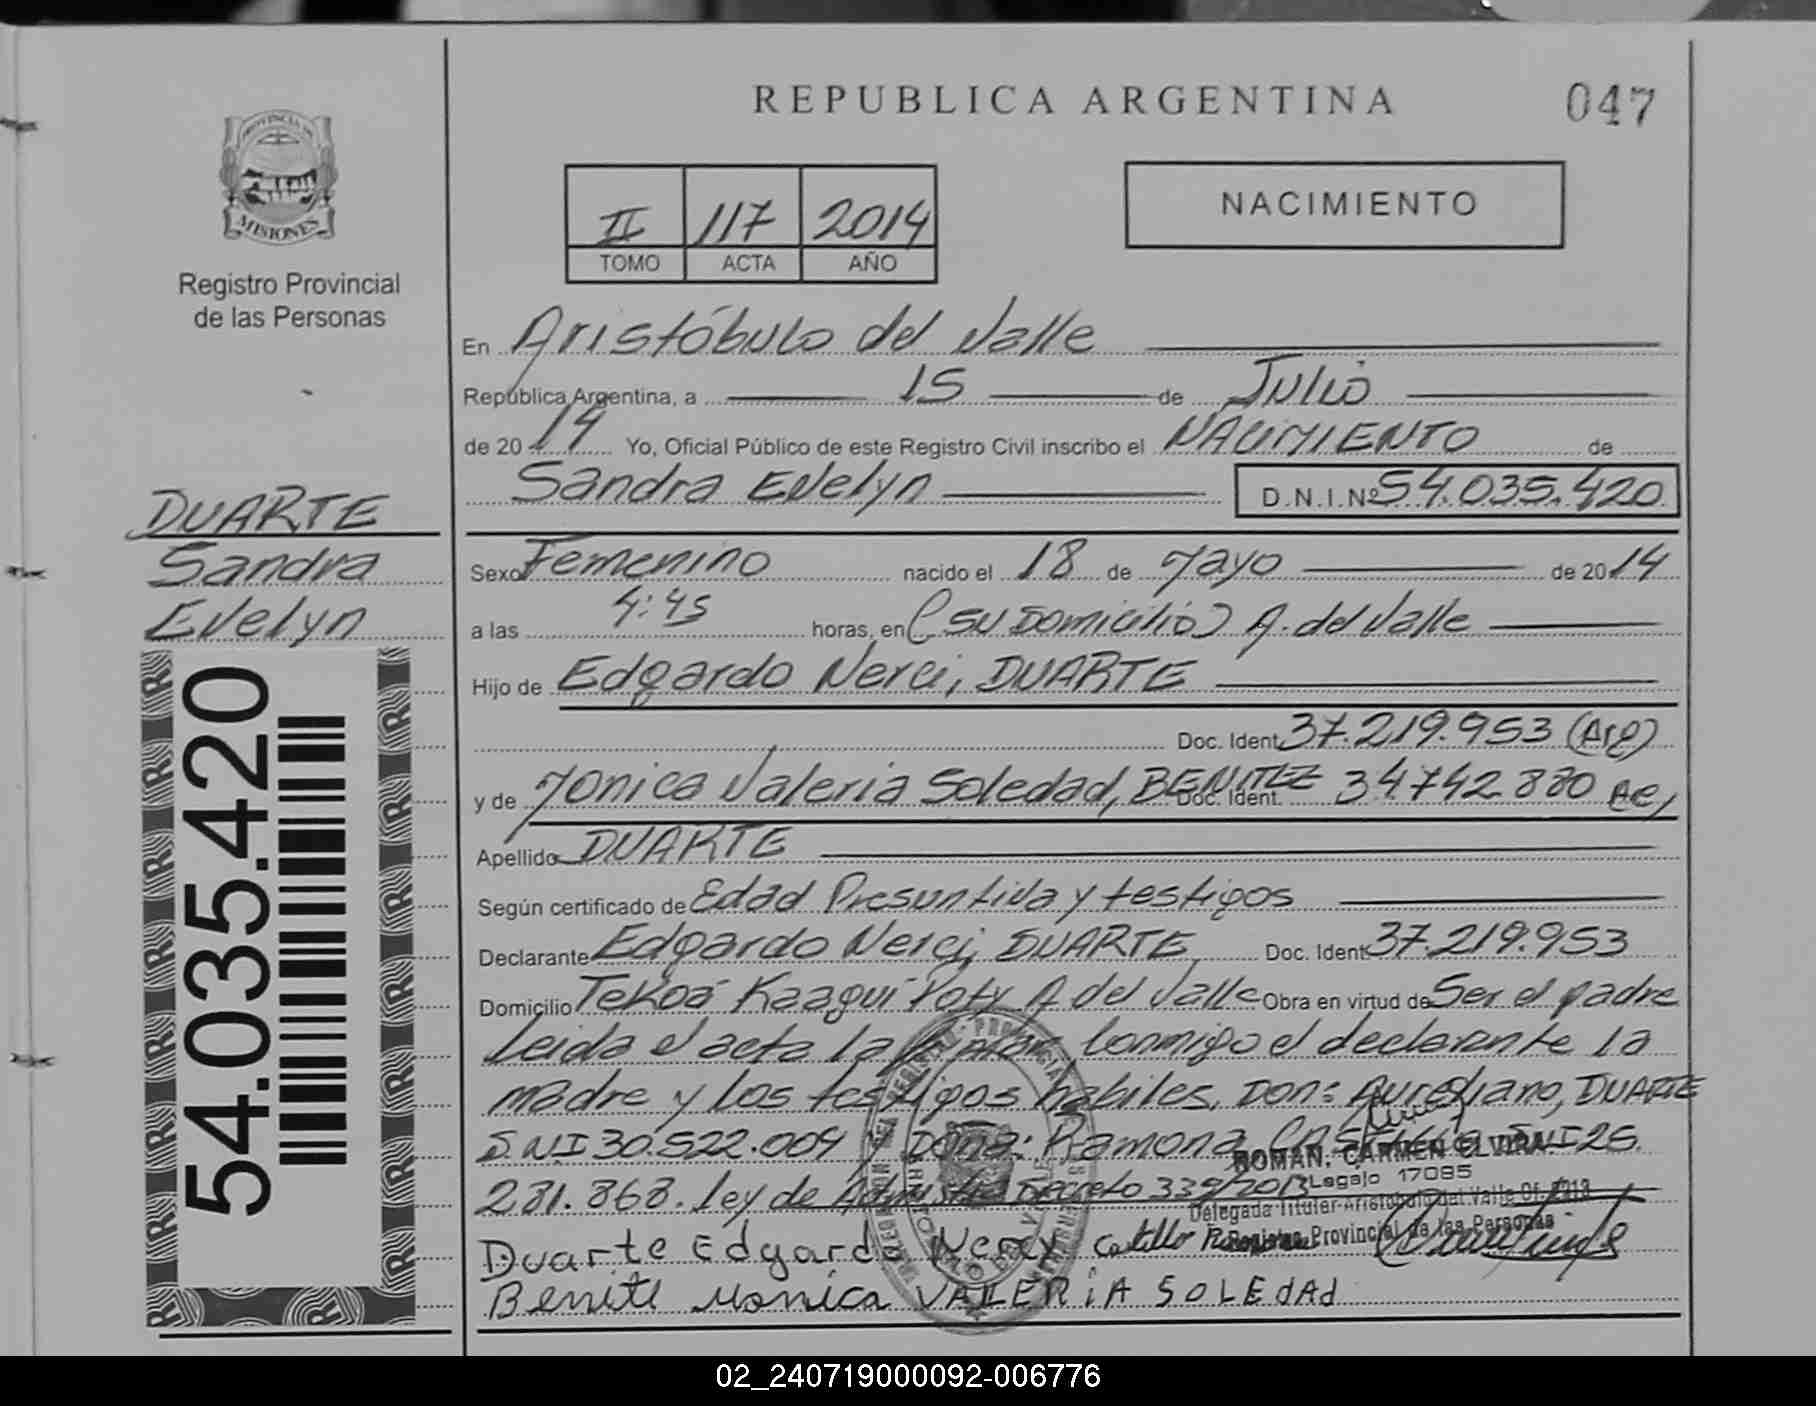 REPUBLICA ARGENTINA
047
PROVINCIA DE
MISIONES
Registro Provincial
de las Personas
II 117 2014
TOMO ACTA AÑO
NACIMIENTO
En Aristóbulo del Valle
República Argentina, a 15 de Julio
de 2014 Yo, Oficial Público de este Registro Civil inscribo el NACIMIENTO de
Sandra Evelyn D.N.I.Nº 54.035.420
DUARTE
Sandra
Evelyn
54.035.420
Sexo Femenino nacido el 18 de Mayo de 2014
a las 4:45 horas, en (su Domicilio) A. del Valle
Hijo de Edgardo Nerci, DUARTE
Doc. Ident. 37.219.953 (Arg)
y de Monica Valeria Soledad, BENITEZ Doc. Ident. 34742880
Apellido DUARTE
Según certificado de Edad Presuntiva y testigos
Declarante Edgardo Nerci, DUARTE Doc. Ident. 37.219.953
Domicilio Tekoa Kaagui Poty A. del Valle Obra en virtud de Ser el padre
Leida el acta la conmigo el declarante la
madre y los testigos habiles, Don: Aureliano, DUARTE
D.N.I 30.522.009 y Doña: Ramona DNI 26.
281.868. Ley de Decreto 339/2013
ROMAN, CARMEN ELVIRA
Legajo 17085
Delegada Titular Aristobulo del Valle
Registro Provincial de las Personas
Duarte Edgardo Nercy Castillo
Benite Monica VALERIA SOLEDAD
02_240719000092-006776